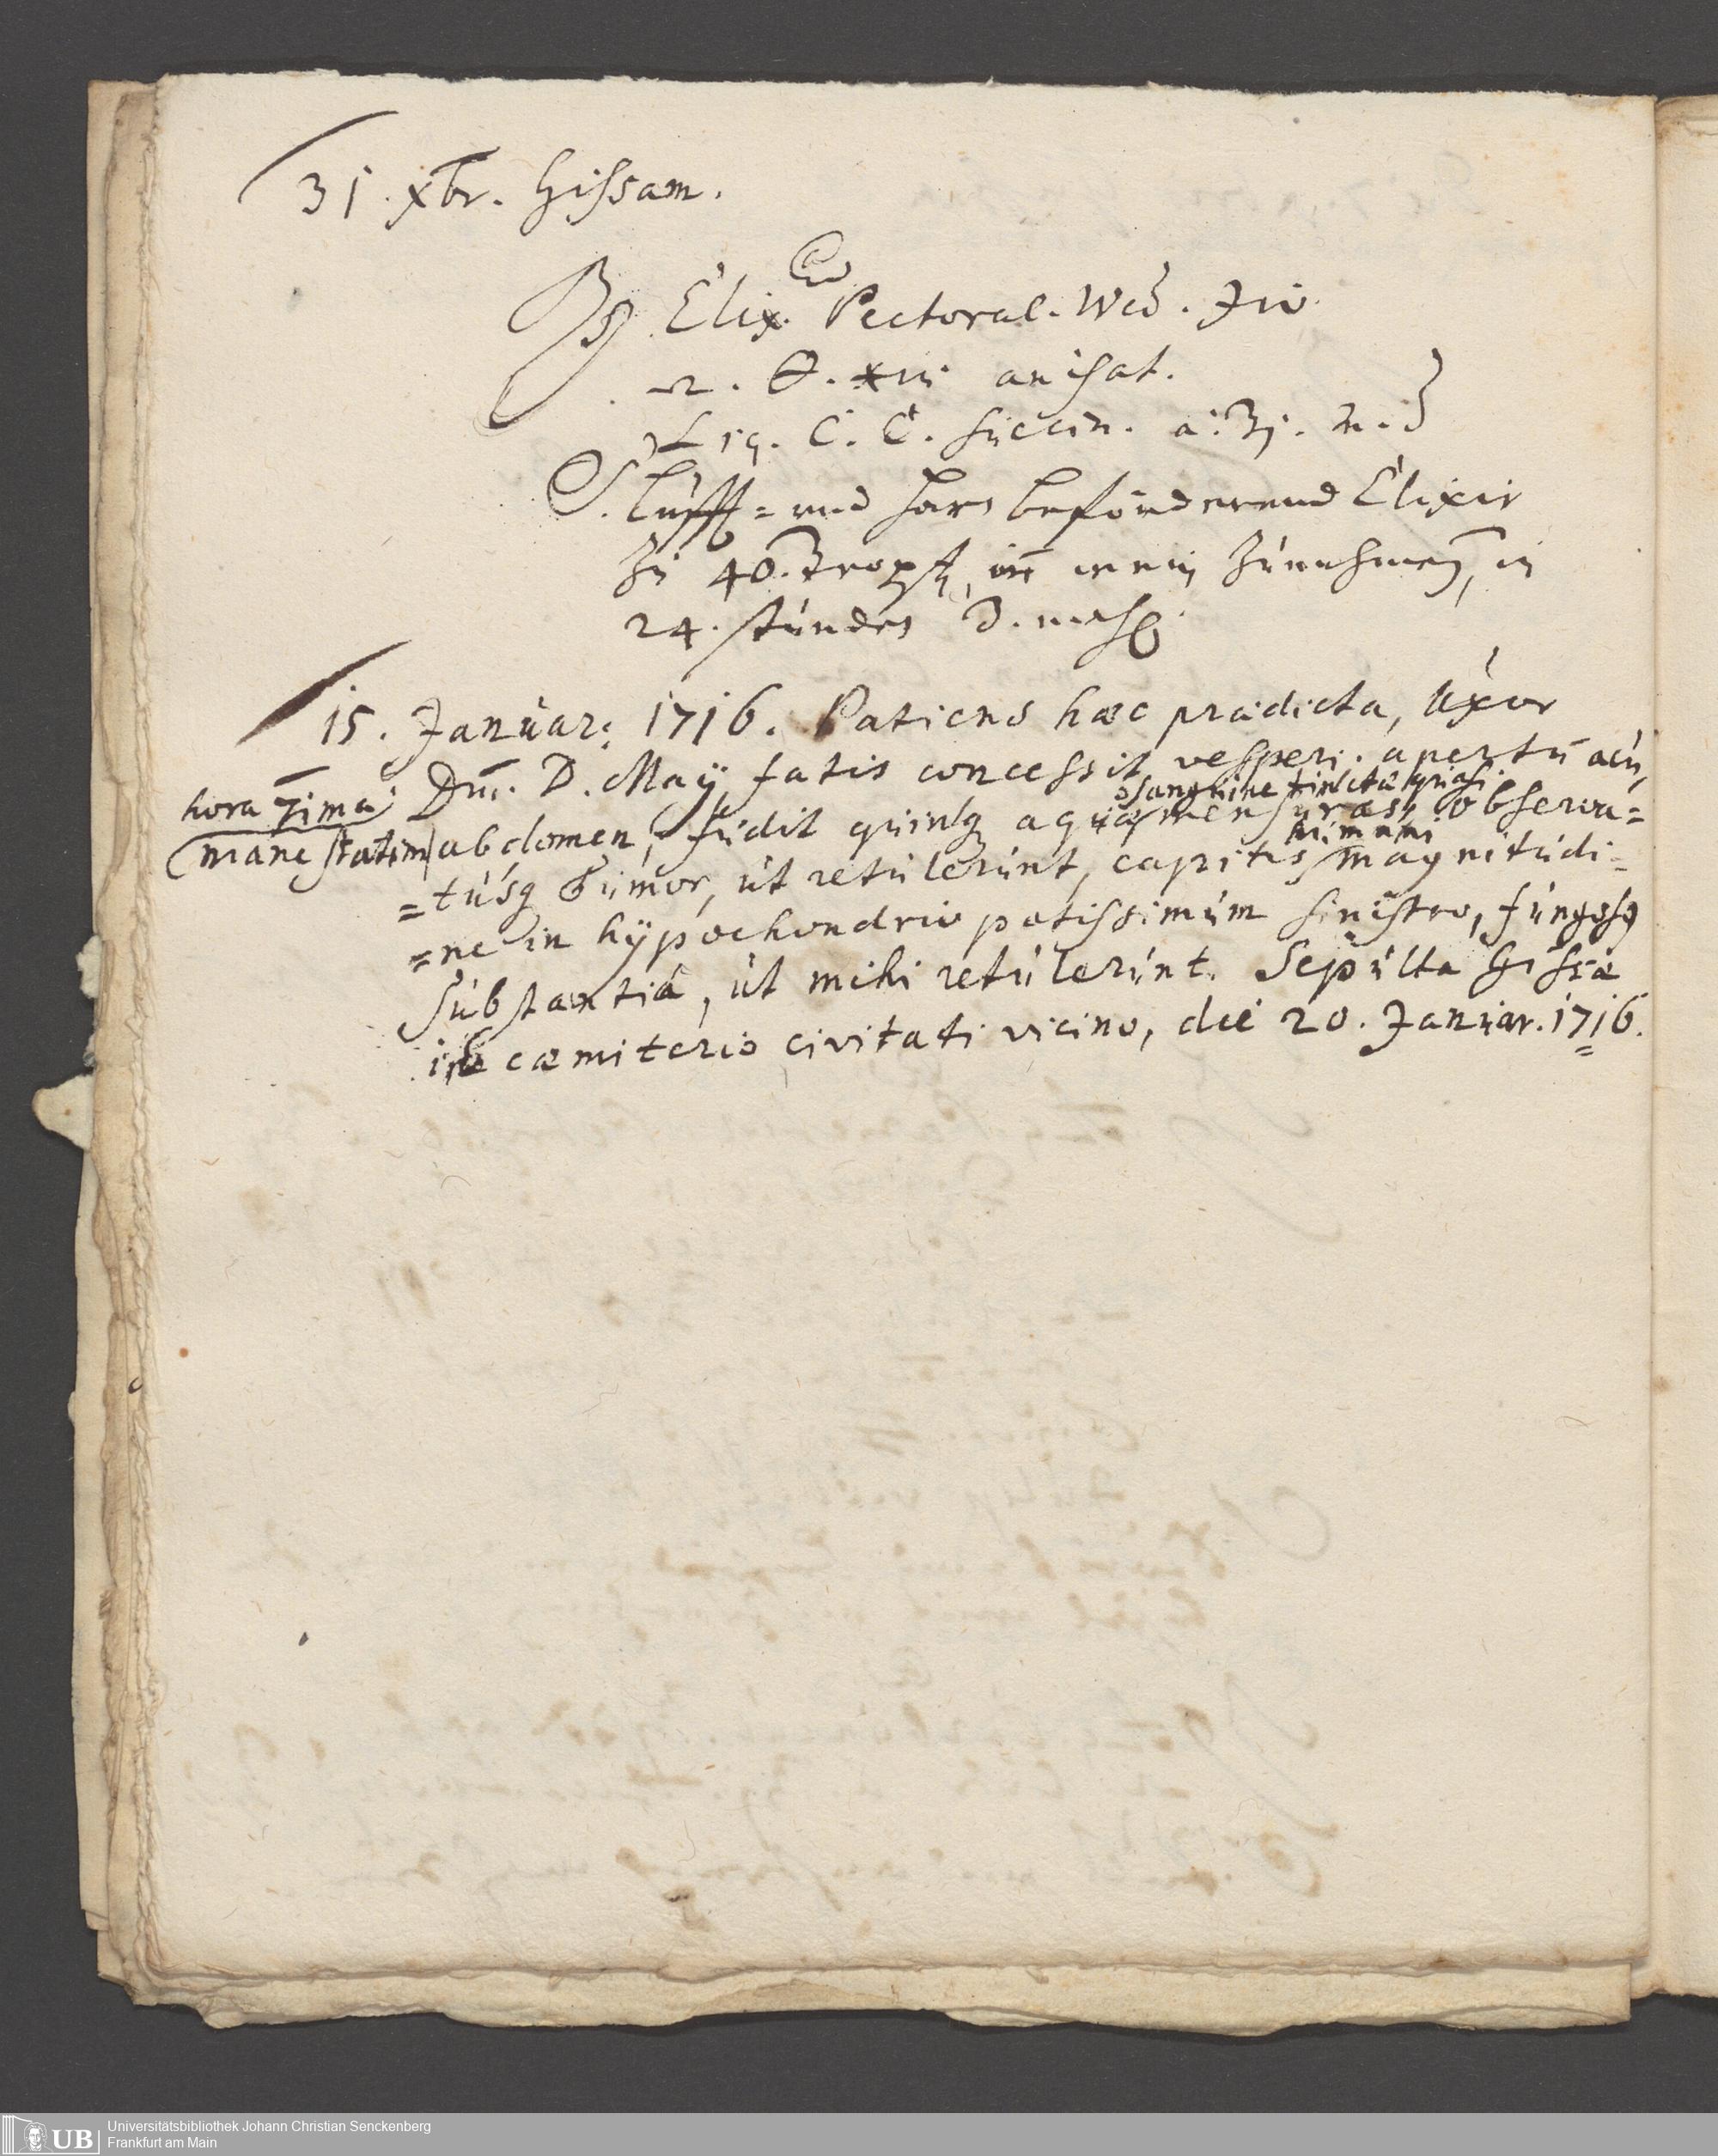 31. xbr. Gissam.
℞ Elix. Pectoral. Wed. ʒiv
anisat.
Liq. C. C. succin. a. ʒj. m. d
S. Lufft= und befönderend Elixir
Zu 40. Tropf, zunehmen, in
24. stunden
15. Januar: 1716. Patiens haec praedicta, Uxor
Dni. D. May, fatis concessit vesperi. apertū acu,
hora 7ima
sanguine tinctae quasi
mane statim abdomen, fudit quinq aquae mensuras, observa=
humani
=tusq tumor, ut retulerunt, capitis magnitudi=
=ne in hÿpochondrio potissimum sinistro, fungosa
substantiâ, ut mihi retulerunt. Sepulta Gissae
in caemiterio civitati vicino, die 20. Januar. 1716.
UB Universitätsbibliothek Johann Christian Senckenberg
Frankfurt am Main